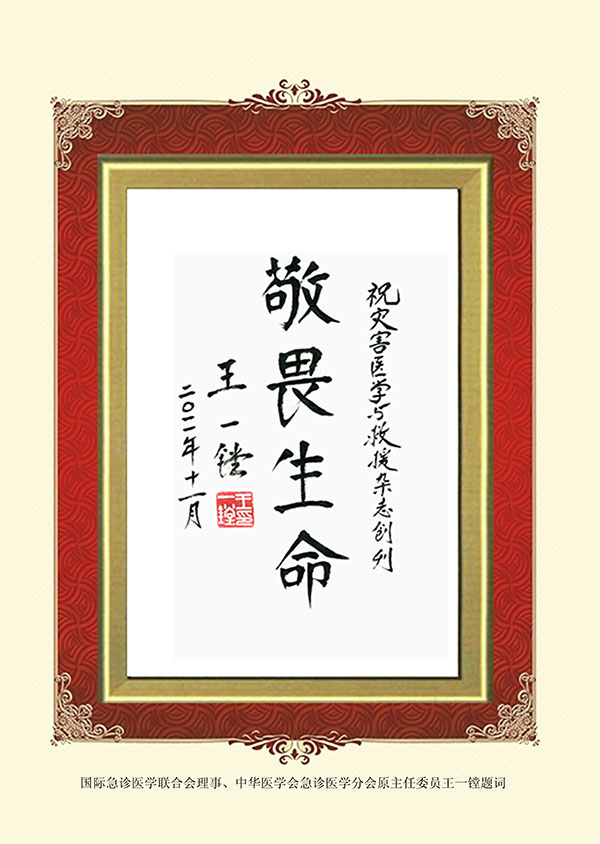 祝灾害医学与救援杂志创刊
敬畏生命
王一镗
二〇一一年十一月
王一镗印
国际急诊医学联合会理事、中华医学会急诊医学分会原主任委员王一镗题词